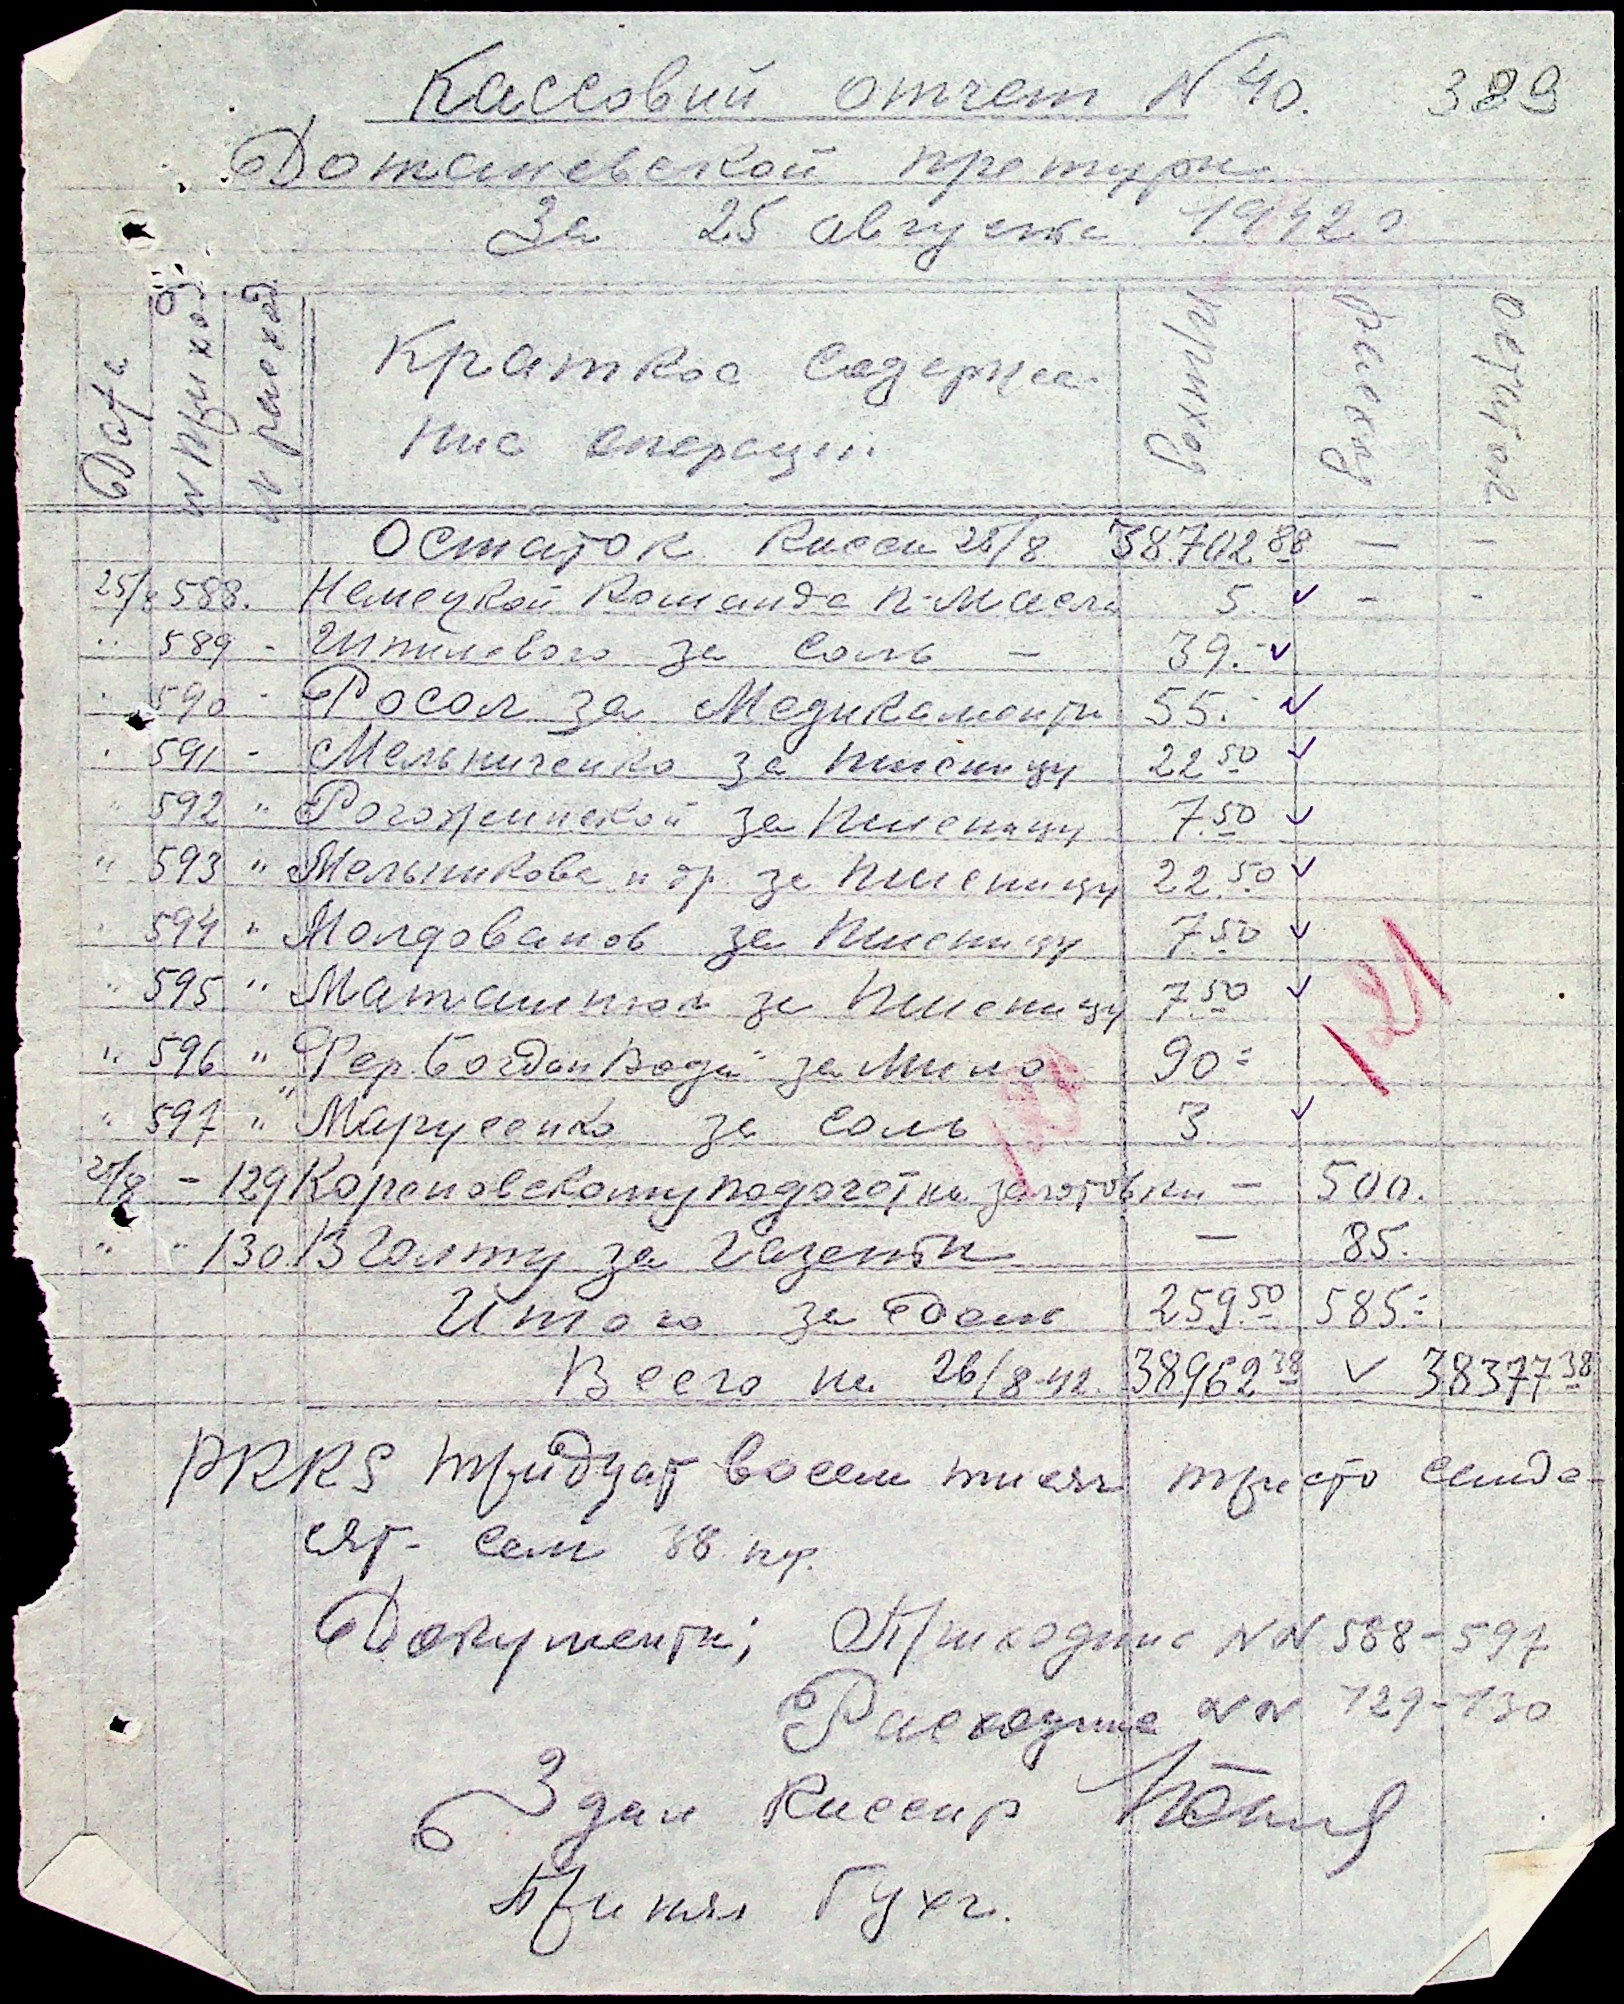 Кассовий отчет N 40. 389
Доманевской претури
За 25 августа 1942 г
Дата N приход N расход Краткое содержа- приход расход остаток
ние операции
Остаток Касси 25/8 38702 88 — —
25/8 588. Немецкой команде п-масла 5. - -
" 589 - за соль - 39.-
" 590 - Росол за Медикаменти 55.-
" 591 - Мельниченко за пшеницу 22 50
" 592 " Рогожинской за пшеницу 7.50
" 593 " Мельникова и др. за пшеницу 22.50
" 594 " Молдованов за пшеницу 7 50
" 595 " за пшеницу 7.50
" 596 " Фер. "Богдан Вода" за мило 90=
" 597 " Марусенко за соль 3.
25/8 - 129 Кореновскому подотчёт на заготовки - 500.
" " 130 В Голту за газети — 85.
Итого за день 259.50 585.=
Всего на 26/8-42. 38962 38 38377 38
РККS тридцат восем тисяч тристо семде-
сят- сем 38 пф.
Документи; Приходние NN 588-597
Расходние NN 129-130
121
Здал Кассир
Принял Бухг.